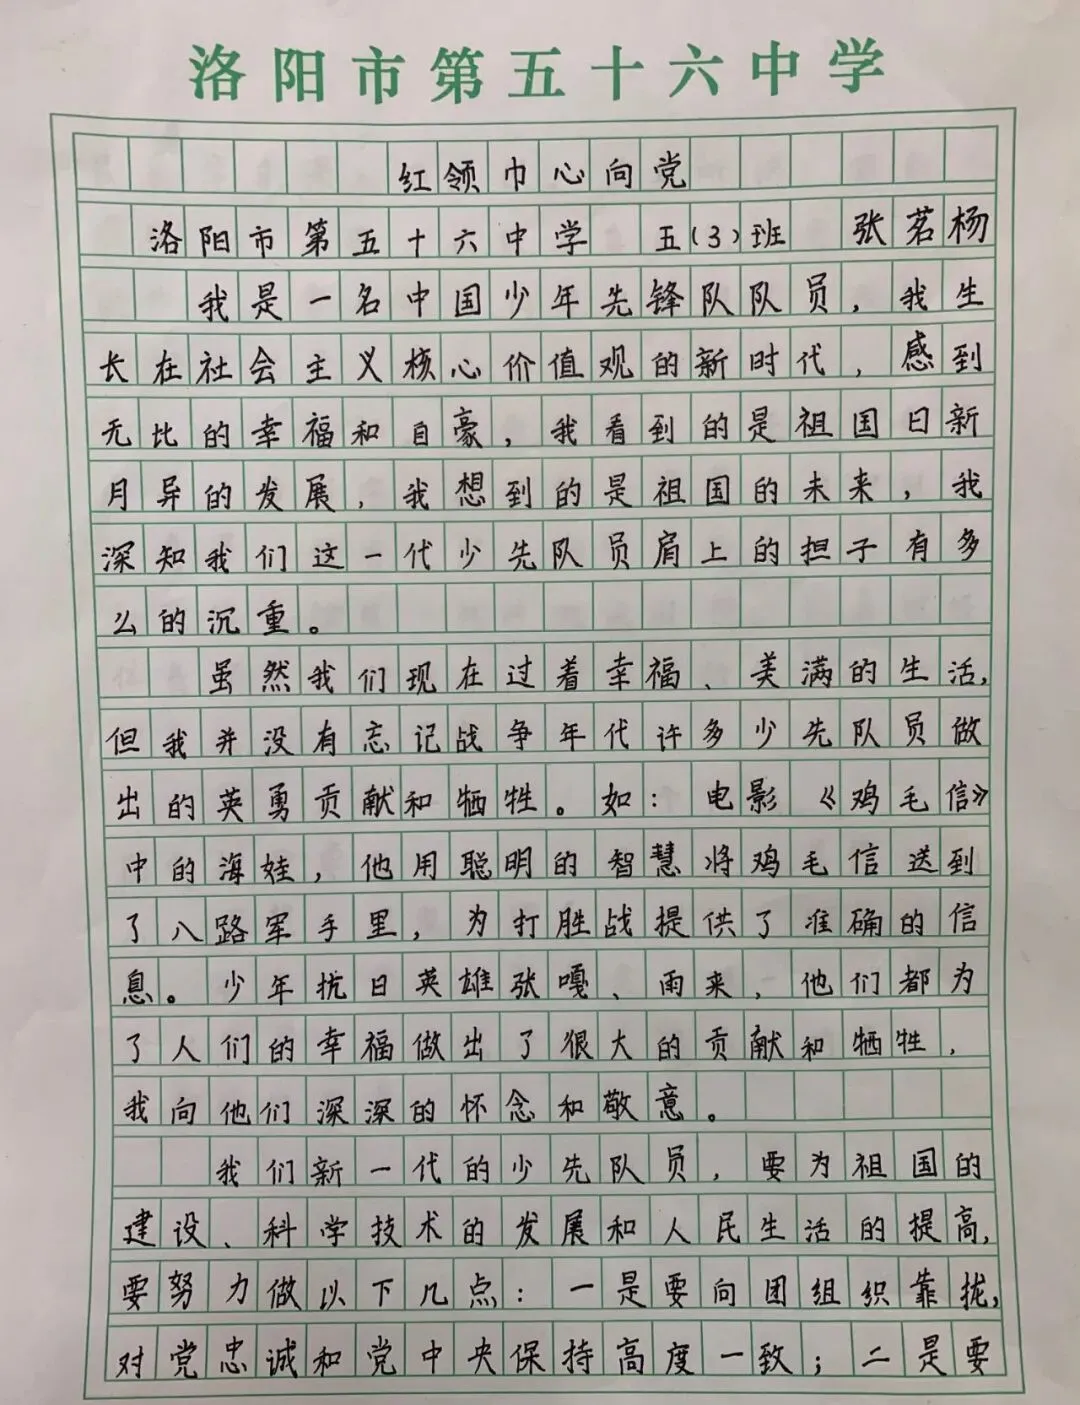 洛阳市第五十六中学
红领巾心向党
洛阳市第五十六中学 五(3)班 张茗杨
我是一名中国少年先锋队队员，我生
长在社会主义核心价值观的新时代，感到
无比的幸福和自豪，我看到的是祖国日新
月异的发展，我想到的是祖国的未来，我
深知我们这一代少先队员肩上的担子有多
么的沉重。
虽然我们现在过着幸福、美满的生活，
但我并没有忘记战争年代许多少先队员做
出的英勇贡献和牺牲。如：电影《鸡毛信》
中的海娃，他用聪明的智慧将鸡毛信送到
了八路军手里，为打胜战提供了准确的信
息。少年抗日英雄张嘎、雨来，他们都为
了人们的幸福做出了很大的贡献和牺牲，
我向他们深深的怀念和敬意。
我们新一代的少先队员，要为祖国的
建设、科学技术的发展和人民生活的提高，
要努力做以下几点：一是要向团组织靠拢，
对党忠诚和党中央保持高度一致；二是要